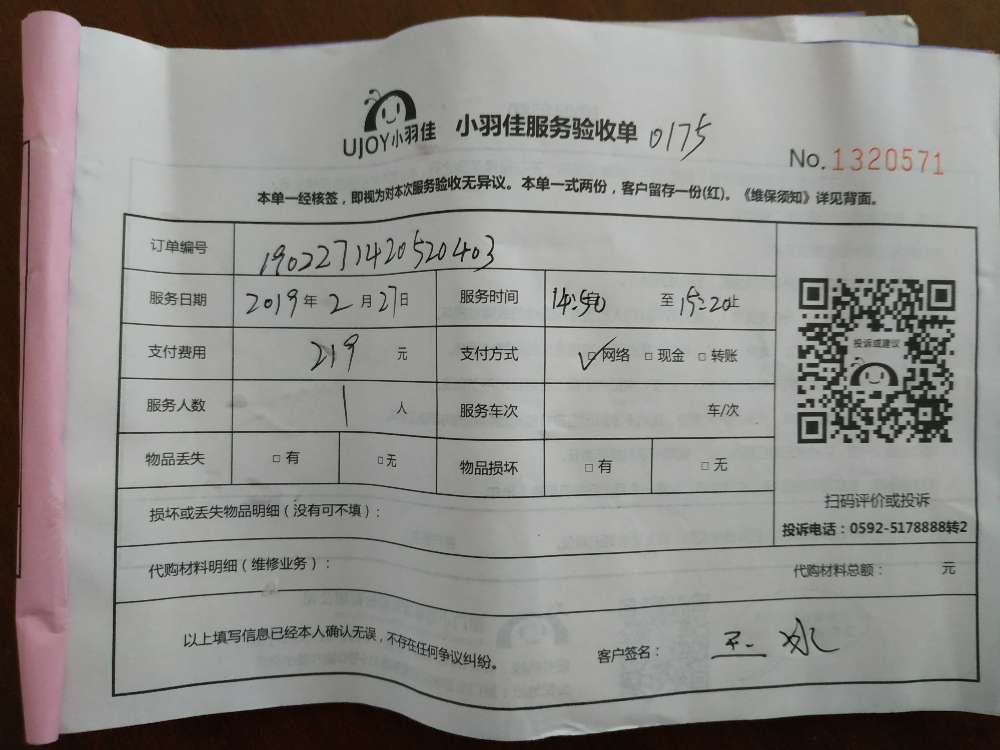 UJOY小羽佳 小羽佳服务验收单 0175
No.1320571
本单一经核签，即视为对本次服务验收无异议。本单一式两份，客户留存一份(红)。《维保须知》详见背面。
订单编号 190227142052040​3
服务日期 2019年2月27日 服务时间 14:50 至 15:20止
支付费用 219 元 支付方式 ☑网络 □现金 □转账
服务人数 1 人 服务车次 车/次
物品丢失 □有 □无 物品损坏 □有 □无
投诉或建议
扫码评价或投诉
投诉电话：0592-5178888转2
损坏或丢失物品明细（没有可不填）：
代购材料明细（维修业务）： 代购材料总额： 元
以上填写信息已经本人确认无误，不存在任何争议纠纷。 客户签名： 王冰